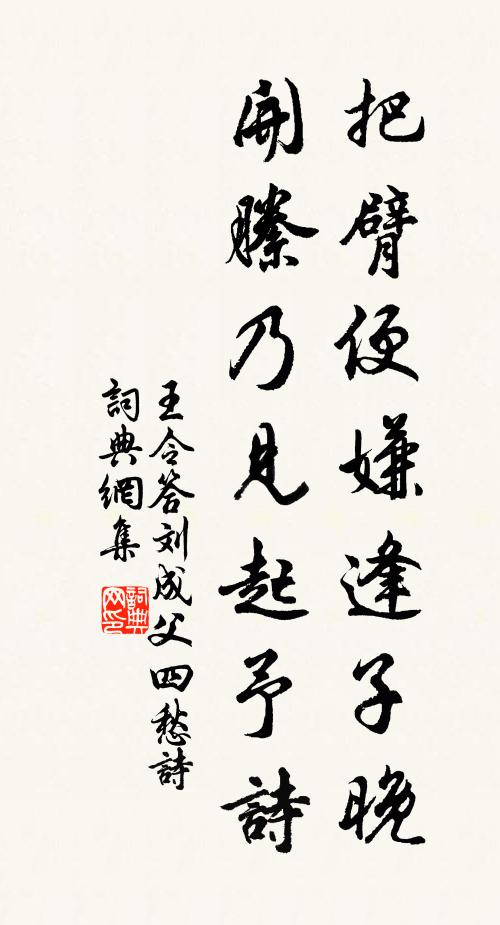 把臂便嫌逢子晚
開縢乃見起予詩
王令答刘成父四愁詩
詞典網集
詞典
网印